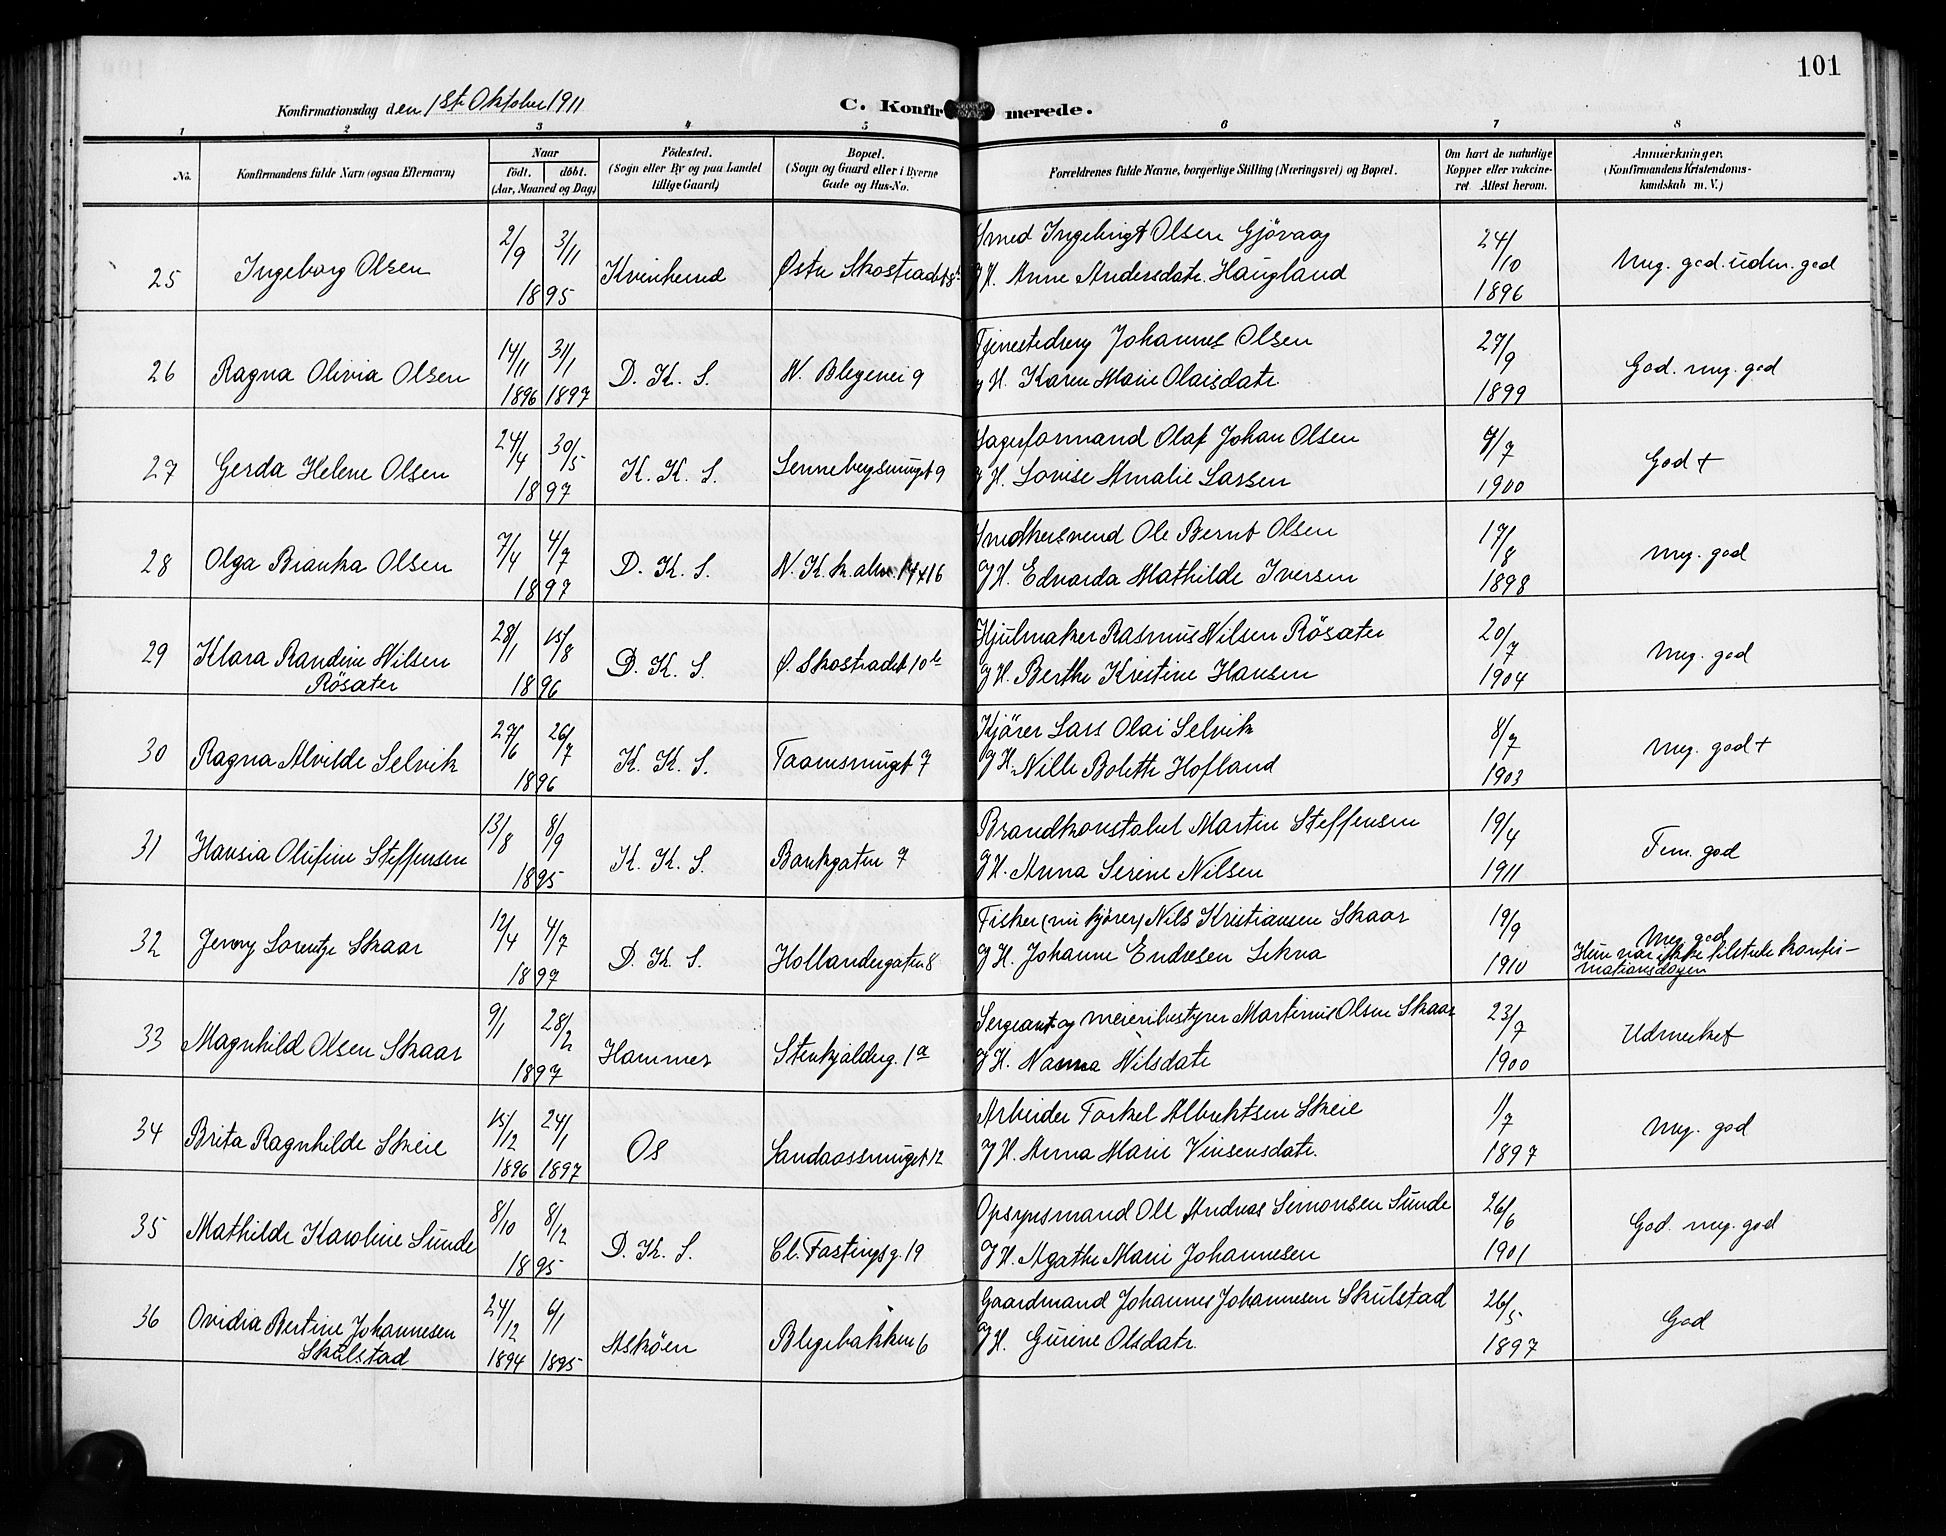 101
Konfirmationsdag den 1ste Oktober 1911
C. Konfirmerede.
1 2 3 4 5 6 7 8
No. Konfirmandens fulde Navn (ogsaa Efternavn) Naar födt. döbt. (Aar, Maaned og Dag) Födested. (Sogn eller By og paa Landet tillige Gaard) Bopæl. (Sogn og Gaard eller i Byerne Gade og Hus-No. Forældrenes fulde Navne, borgerlige Stilling (Næringsvei) og Bopæl. Om havt de naturlige Kopper eller vakcineret. Attest herom. Anmærkninger. (Konfirmandens Kristendomskundskab m. V.)
25 Ingeborg Olsen 2/9 3/11 1895 Kvinherred Østre Skostrædet
Smed Ingebrigt Olsen Gjövaag
g H. Anne Andersdatr. Haugland
24/10 1896 Meg. god. uden. god
26 Ragna Olivia Olsen 14/11 1896 31/1 1897 D. K. S. N. Blegevei 9
Johannes Olsen
g H. Karen Marie Olaisdatr
27/9 1899 God. meg. god
27 Gerda Helene Olsen 24/4 30/5 1897 K. K. S. 9
Lagerformand Olaf Johan Olsen
g H. Lovise Amalie Larsen
7/7 1900 God +
28 Olga Bianka Olsen 7/4 4/7 1897 D. K. S. 14 x 16
Smedkusvend Ole Bernt Olsen
g H. Edvarda Mathilde Iversen
17/8 1898 meg. god
29 Klara Randine Nilsen
Rösæter
28/1 15/8 1896 D. K. S. Ø. Skostrædet 10 b
Hjulmaker Rasmus Nilsen Rösæter
g H. Berthe Kristine Hansen
20/7 1904 meg. god
30 Ragna Alvilde Selvik 27/6 26/7 1896 K. K. S. Taarnsmuget 7
Kjörer Lars Olai Selvik
g H. Nille Bolette Hofland
8/7 1903 meg. god +
31 Hansia Olufine Steffensen 13/8 8/9 1895 K. K. S. Bankgaten 7
Brandkonstabel Martin Steffensen
g H. Anna Serine Nilsen
19/4 1911 Tem. god
32 Jenny Lorentze Skaar 12/4 4/7 1897 D. K. S. Hollendergaten 8
Fisker (nu kjörer) Nils Kristiansen Skaar
g H. Johanne Endresen Lekva
19/9 1910 Meg god
Hun var ikke tilstede konfir-
mationsdagen
33 Magnhild Olsen Skaar 9/1 28/2 1897 Hammer Stenkjælderg. 1 a
Sergeant og meieribestyrer Martinus Olsen Skaar
g H. Nanna Nilsdatr
23/7 1900 Udmerket
34 Brita Ragnhilde Skeie 15/12 1896 24/1 1897 Os Sandaassmuget 12
Arbeider Torkel Albrektsen Skeie
g H. Anna Marie Vinsensdatr.
1/7 1897 meg. god
35 Mathilde Karoline Sunde 8/10 8/12 1895 D. K. S. Cl. Fastingsg. 19
Opsynsmand Ole Andreas Simonsen Sunde
g H. Agathe Marie Johannesen
26/6 1901 God. meg. god
36 Ovidia Bertine Johannesen
Skulstad
24/12 1894 6/1 1895 Asköen Blegebakken 6
Gaardmand Johannes Johannesen Skulstad
g H. Gurine Olsdatr.
26/5 1897 God